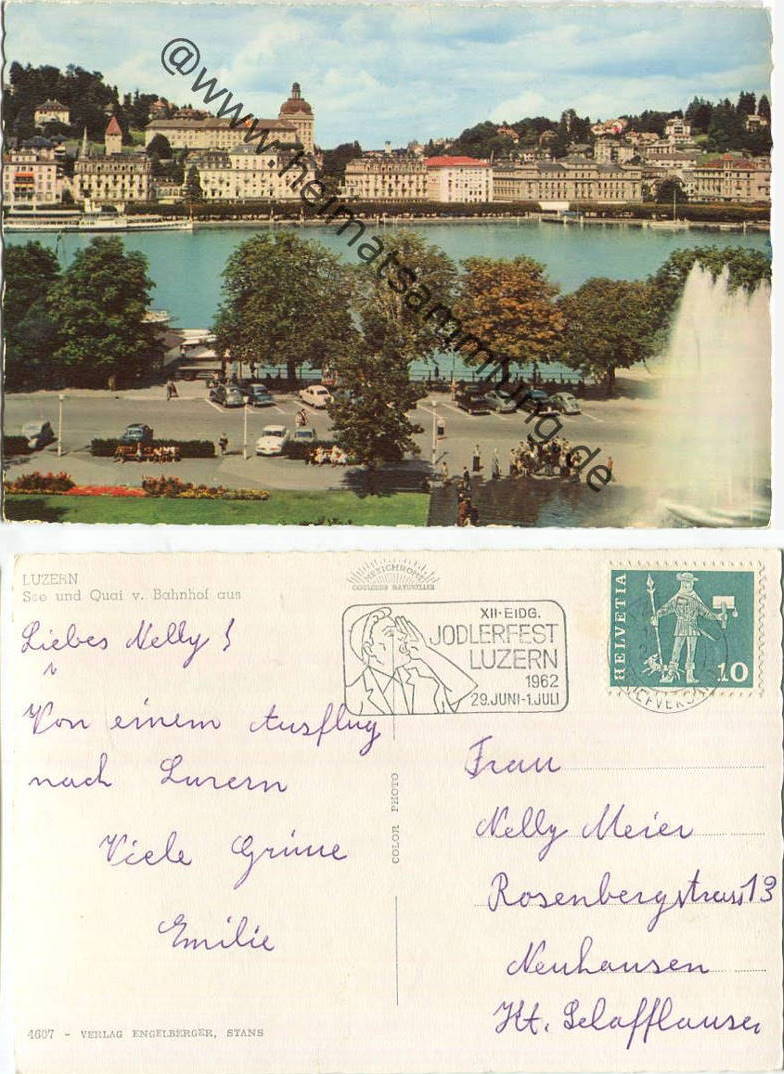 @www.heimatsammlung.de
LUZERN
See und Quai v. Bahnhof aus
MEXICHROME
COULEURS NATURELLES
XII·EIDG.
JODLERFEST
LUZERN
1962
29.JUNI-1.JULI
HELVETIA
10
BRIEFVERSAND
Liebes Nelly!
Von einem Ausflug
nach Luzern
Viele Grüsse
Emilie
COLOR PHOTO
Frau
Nelly Meier
Rosenbergstrass 13
Neuhausen
Kt. Schaffhausen
4607 - VERLAG ENGELBERGER, STANS